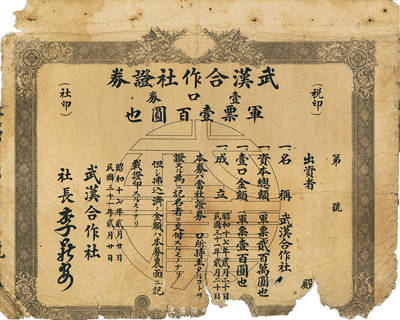 武漢合作社證券
壹口券
軍票壹百圓也
（稅印）
（社印）
第　　號
出資者　　殿
一名稱　武漢合作社
一資本總額　軍票貳百萬圓也
一壹口金額　軍票壹百圓也
一成立　昭和十七年貳月二十日
民國三十一年貳月二十日
本券ハ當社證券　口所持主タルコトヲ
證スル為ニ記名者ニ交付スルモノナリ
但シ拂込濟ノ金額ハ本券裏面ニ記
載證印スルモノナリ
昭和十七年貳月廿日
民國三十一年貳月廿日
武漢合作社
社長